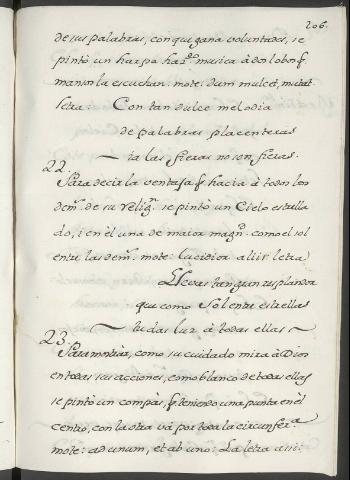 206.
de sus palabras, con que gana voluntades, se
pintò un harpa haz.do musica à dos lobos q.
mansos la escuchan. mote. dum mulcet, mutat.
letra: Con tan dulce melodia
de palabras placenteras
ia las fieras no son fieras.
22.
Para decir la ventaja q hacia à todos los
dem.s de su relig.n se pintò un Cielo estrella
do, i en èl una de maior magn.d como el sol
entre las dem.s mote: lucidior aliis letra
Llevas tan gran resplandor
que como Sol entre estrellas
tu das luz à todas ellas
23.
Para mostrar, como su cuidado mira à Dios
en todas sus acciones, como blanco de todas ellas
se pintò un compàs, q teniendo una punta en èl
centro, con la otra và por toda la circunfer.a
mote: ad unum, et ab uno: La letra assi: